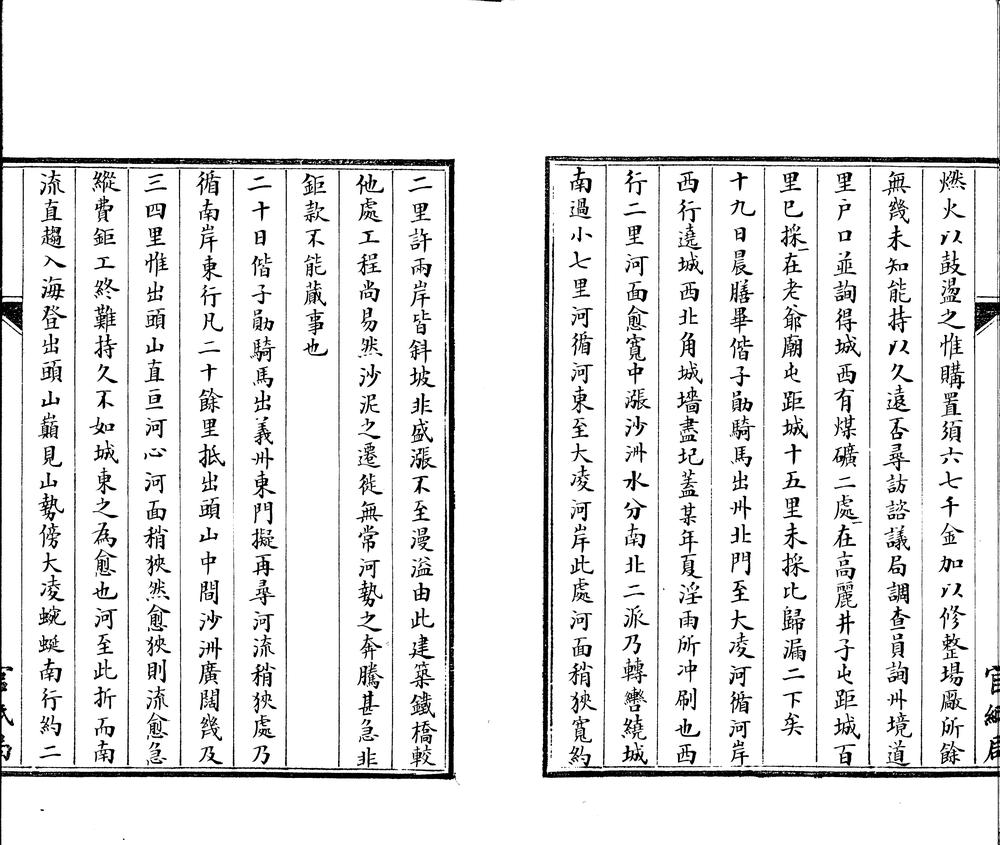 燃火以鼓盪之惟購置須六七千金加以修整場廠所餘
無幾未知能持以久遠否尋訪諮議局調查員詢州境道
里户口並詢得城西有煤礦二處一在高麗井子屯距城百
里已採一在老爺廟屯距城十五里未採比歸漏二下矣
十九日晨膳畢偕子勛騎馬出州北門至大凌河循河岸
西行遶城西北角城墻盡圮蓋某年夏淫雨所冲刷也西
行二里河面愈寬中漲沙洲水分南北二派乃轉轡繞城
南過小七里河循河東至大凌河岸此處河面稍狹寬約
二里許兩岸皆斜坡非盛漲不至漫溢由此建築鐵橋較
他處工程尚易然沙泥之遷徙無常河勢之奔騰甚急非
鉅款不能蕆事也
二十日偕子勛騎馬出義州東門擬再尋河流稍狹處乃
循南岸東行凡二十餘里抵出頭山中間沙洲廣闊幾及
三四里惟出頭山直亘河心河面稍狹然愈狹則流愈急
縱費鉅工終難持久不如城東之為愈也河至此折而南
流直趨入海登出頭山巔見山勢傍大凌蜿蜒南行約二